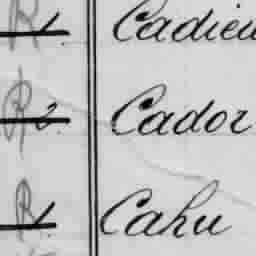 R 1. Cadieu
R 2. Cador
R 1. Cahu